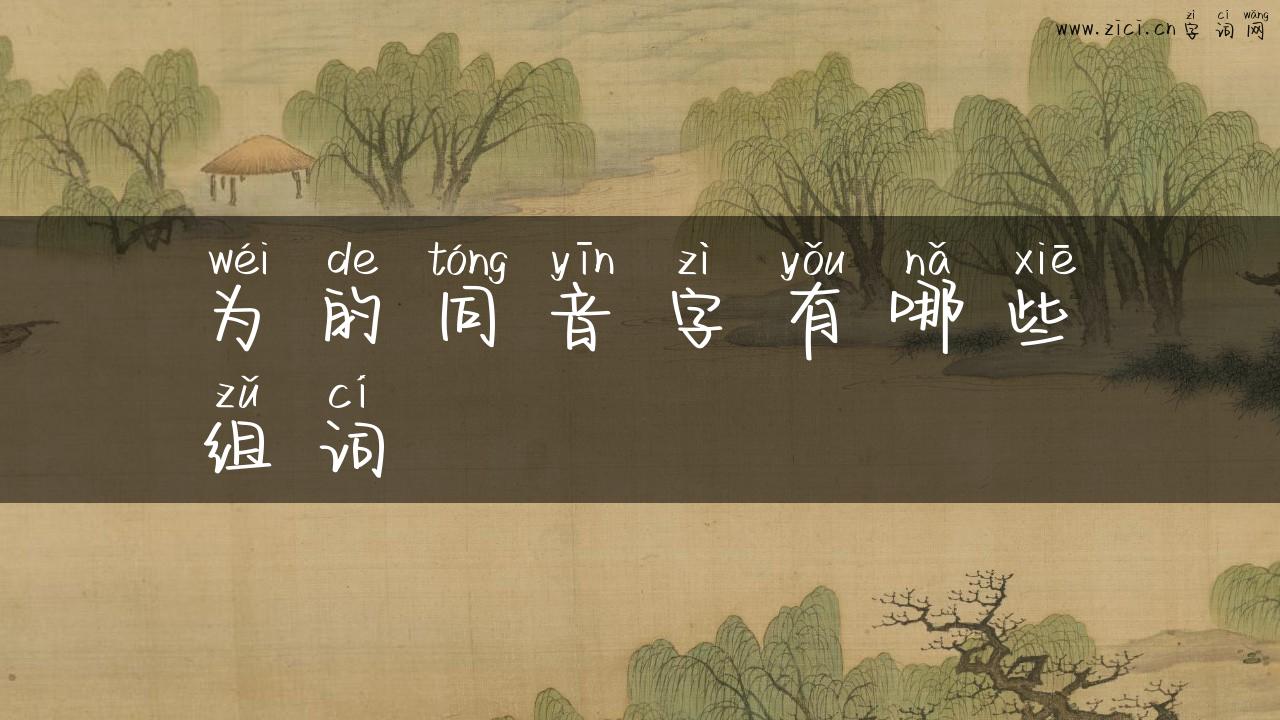 zì cí wǎng
www.zici.cn字词网
wéi de tóng yīn zì yǒu nǎ xiē
为的同音字有哪些
zǔ cí
组词